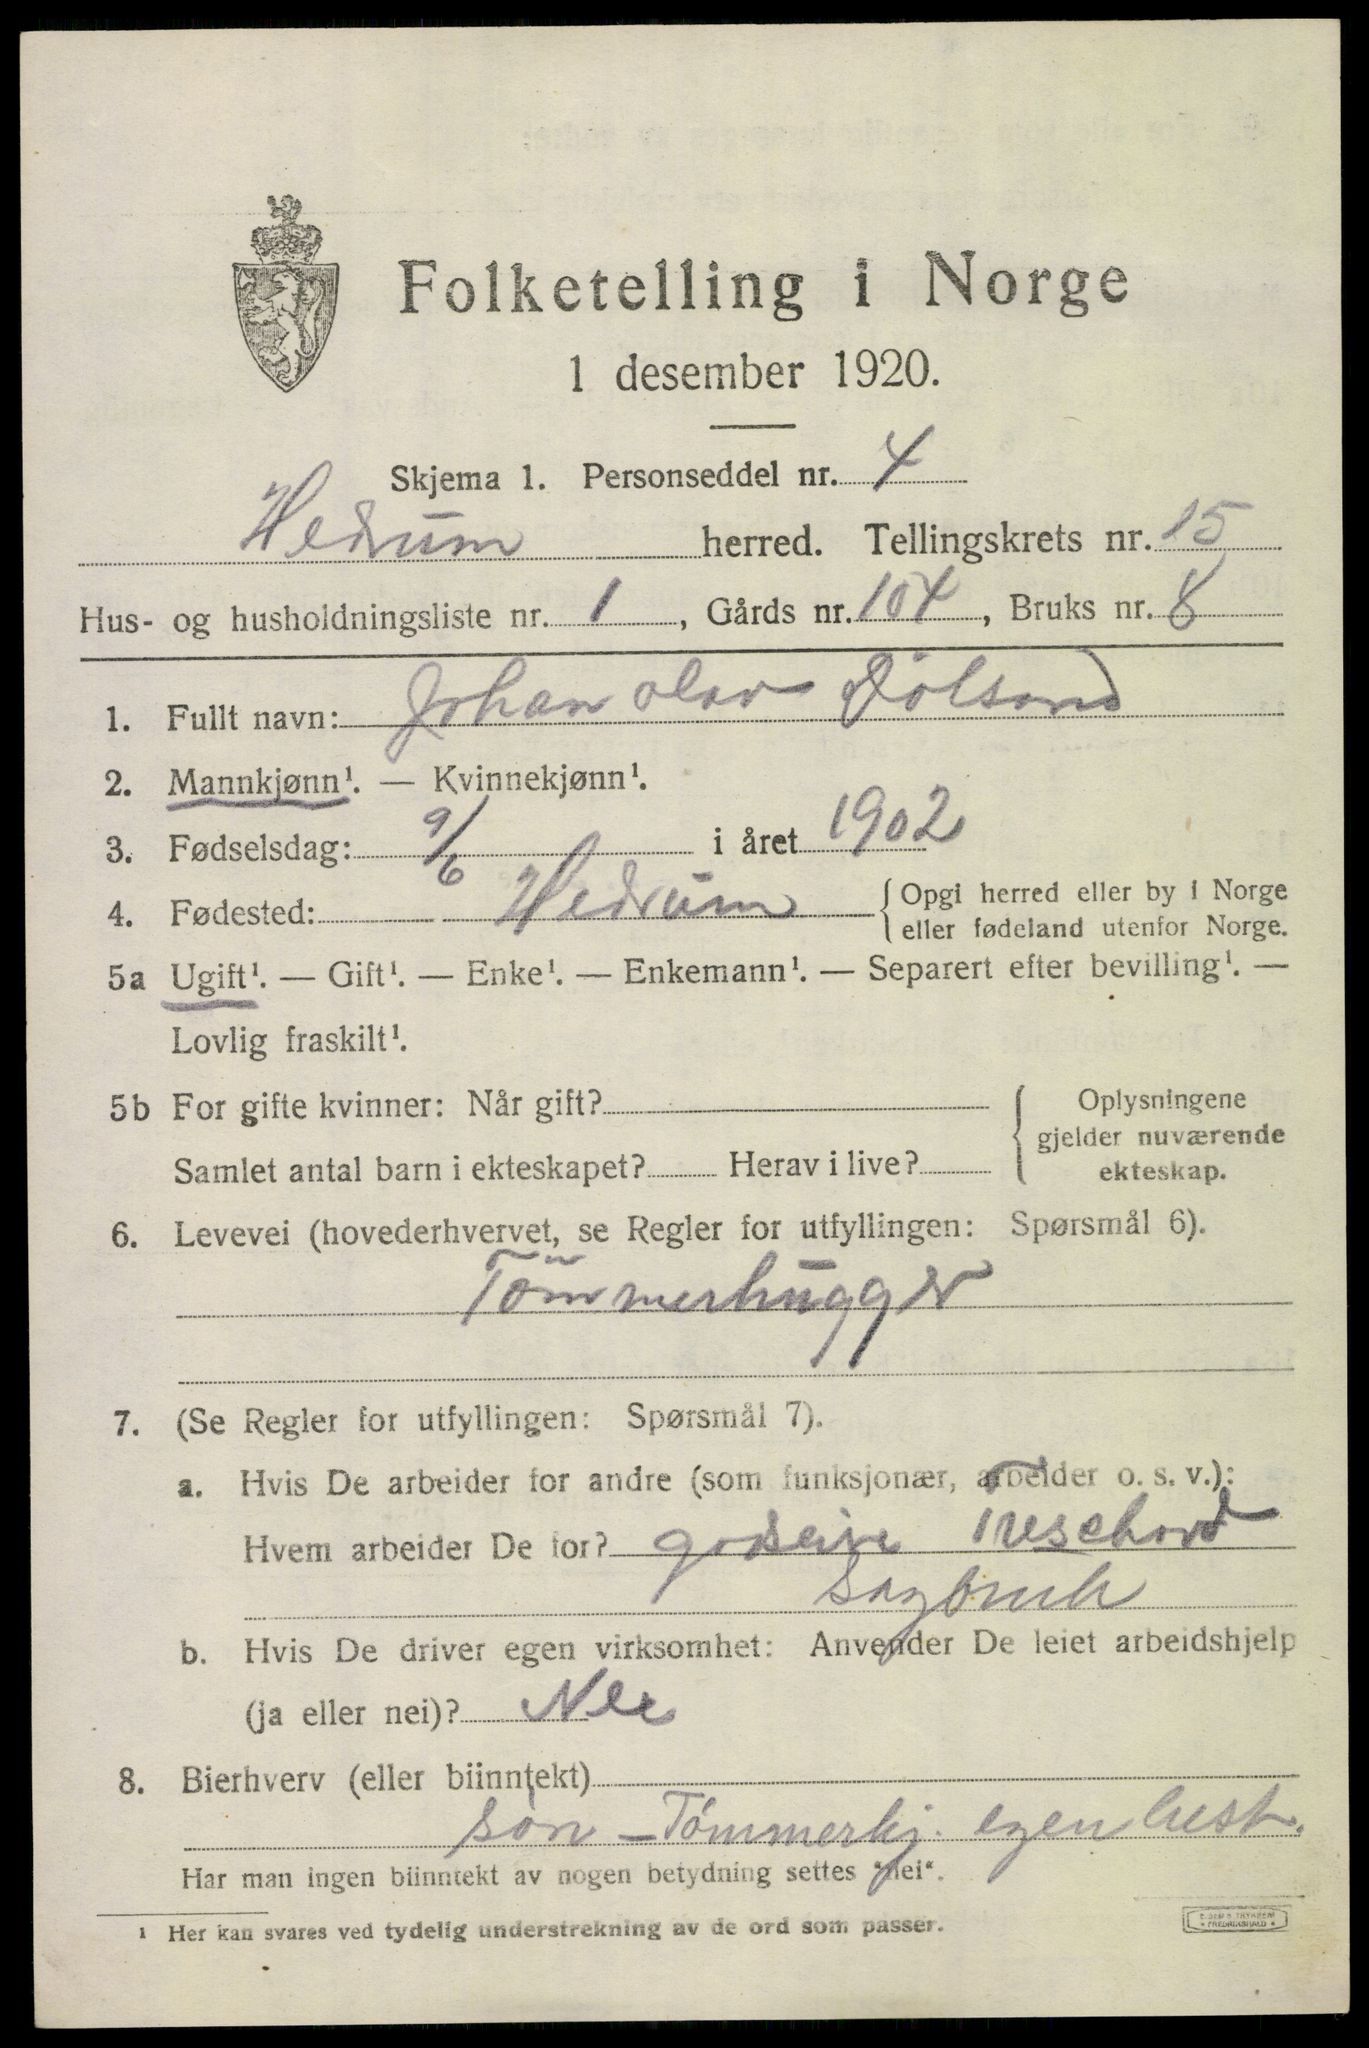 Folketelling i Norge
1 desember 1920.
Skjema 1. Personseddel nr. 4
Hedrum herred. Tellingskrets nr. 15
Hus- og husholdningsliste nr. 1, Gårds nr. 104, Bruks nr. 8
1. Fullt navn: Johan Olav
2. Mannkjønn¹. — Kvinnekjønn¹.
3. Fødselsdag: 9/6 i året 1902
4. Fødested: Hedrum { Opgi herred eller by i Norge
eller fødeland utenfor Norge.
5a Ugift¹. — Gift¹. — Enke¹. — Enkemann¹. — Separert efter bevilling¹. —
Lovlig fraskilt¹.
5b For gifte kvinner: Når gift? { Oplysningene
gjelder nuværende
Samlet antal barn i ekteskapet? Herav i live? ekteskap.
6. Levevei (hovederhvervet, se Regler for utfyllingen: Spørsmål 6).
Tömmerhugger
7. (Se Regler for utfyllingen: Spørsmål 7).
a. Hvis De arbeider for andre (som funksjonær, arbeider o. s. v.):
Hvem arbeider De for? godseier Treschow
Sagbruk
b. Hvis De driver egen virksomhet: Anvender De leiet arbeidshjelp
(ja eller nei)? Nei
8. Bierhverv (eller biinntekt)
sön – Tömmerkj. egen hest.
Har man ingen biinntekt av nogen betydning settes "nei".
¹ Her kan svares ved tydelig understrekning av de ord som passer.